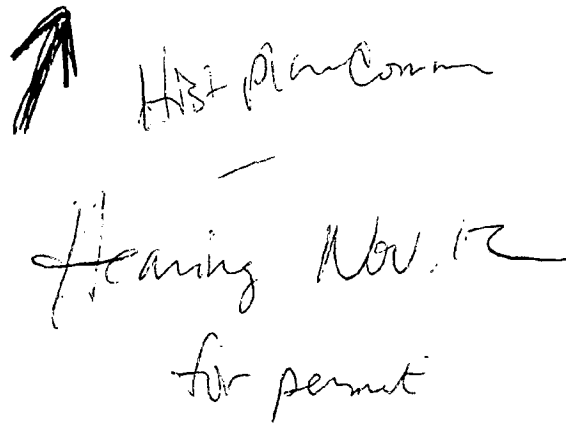 Hist Plan Comm
—
Hearing Nov. 12
for permit